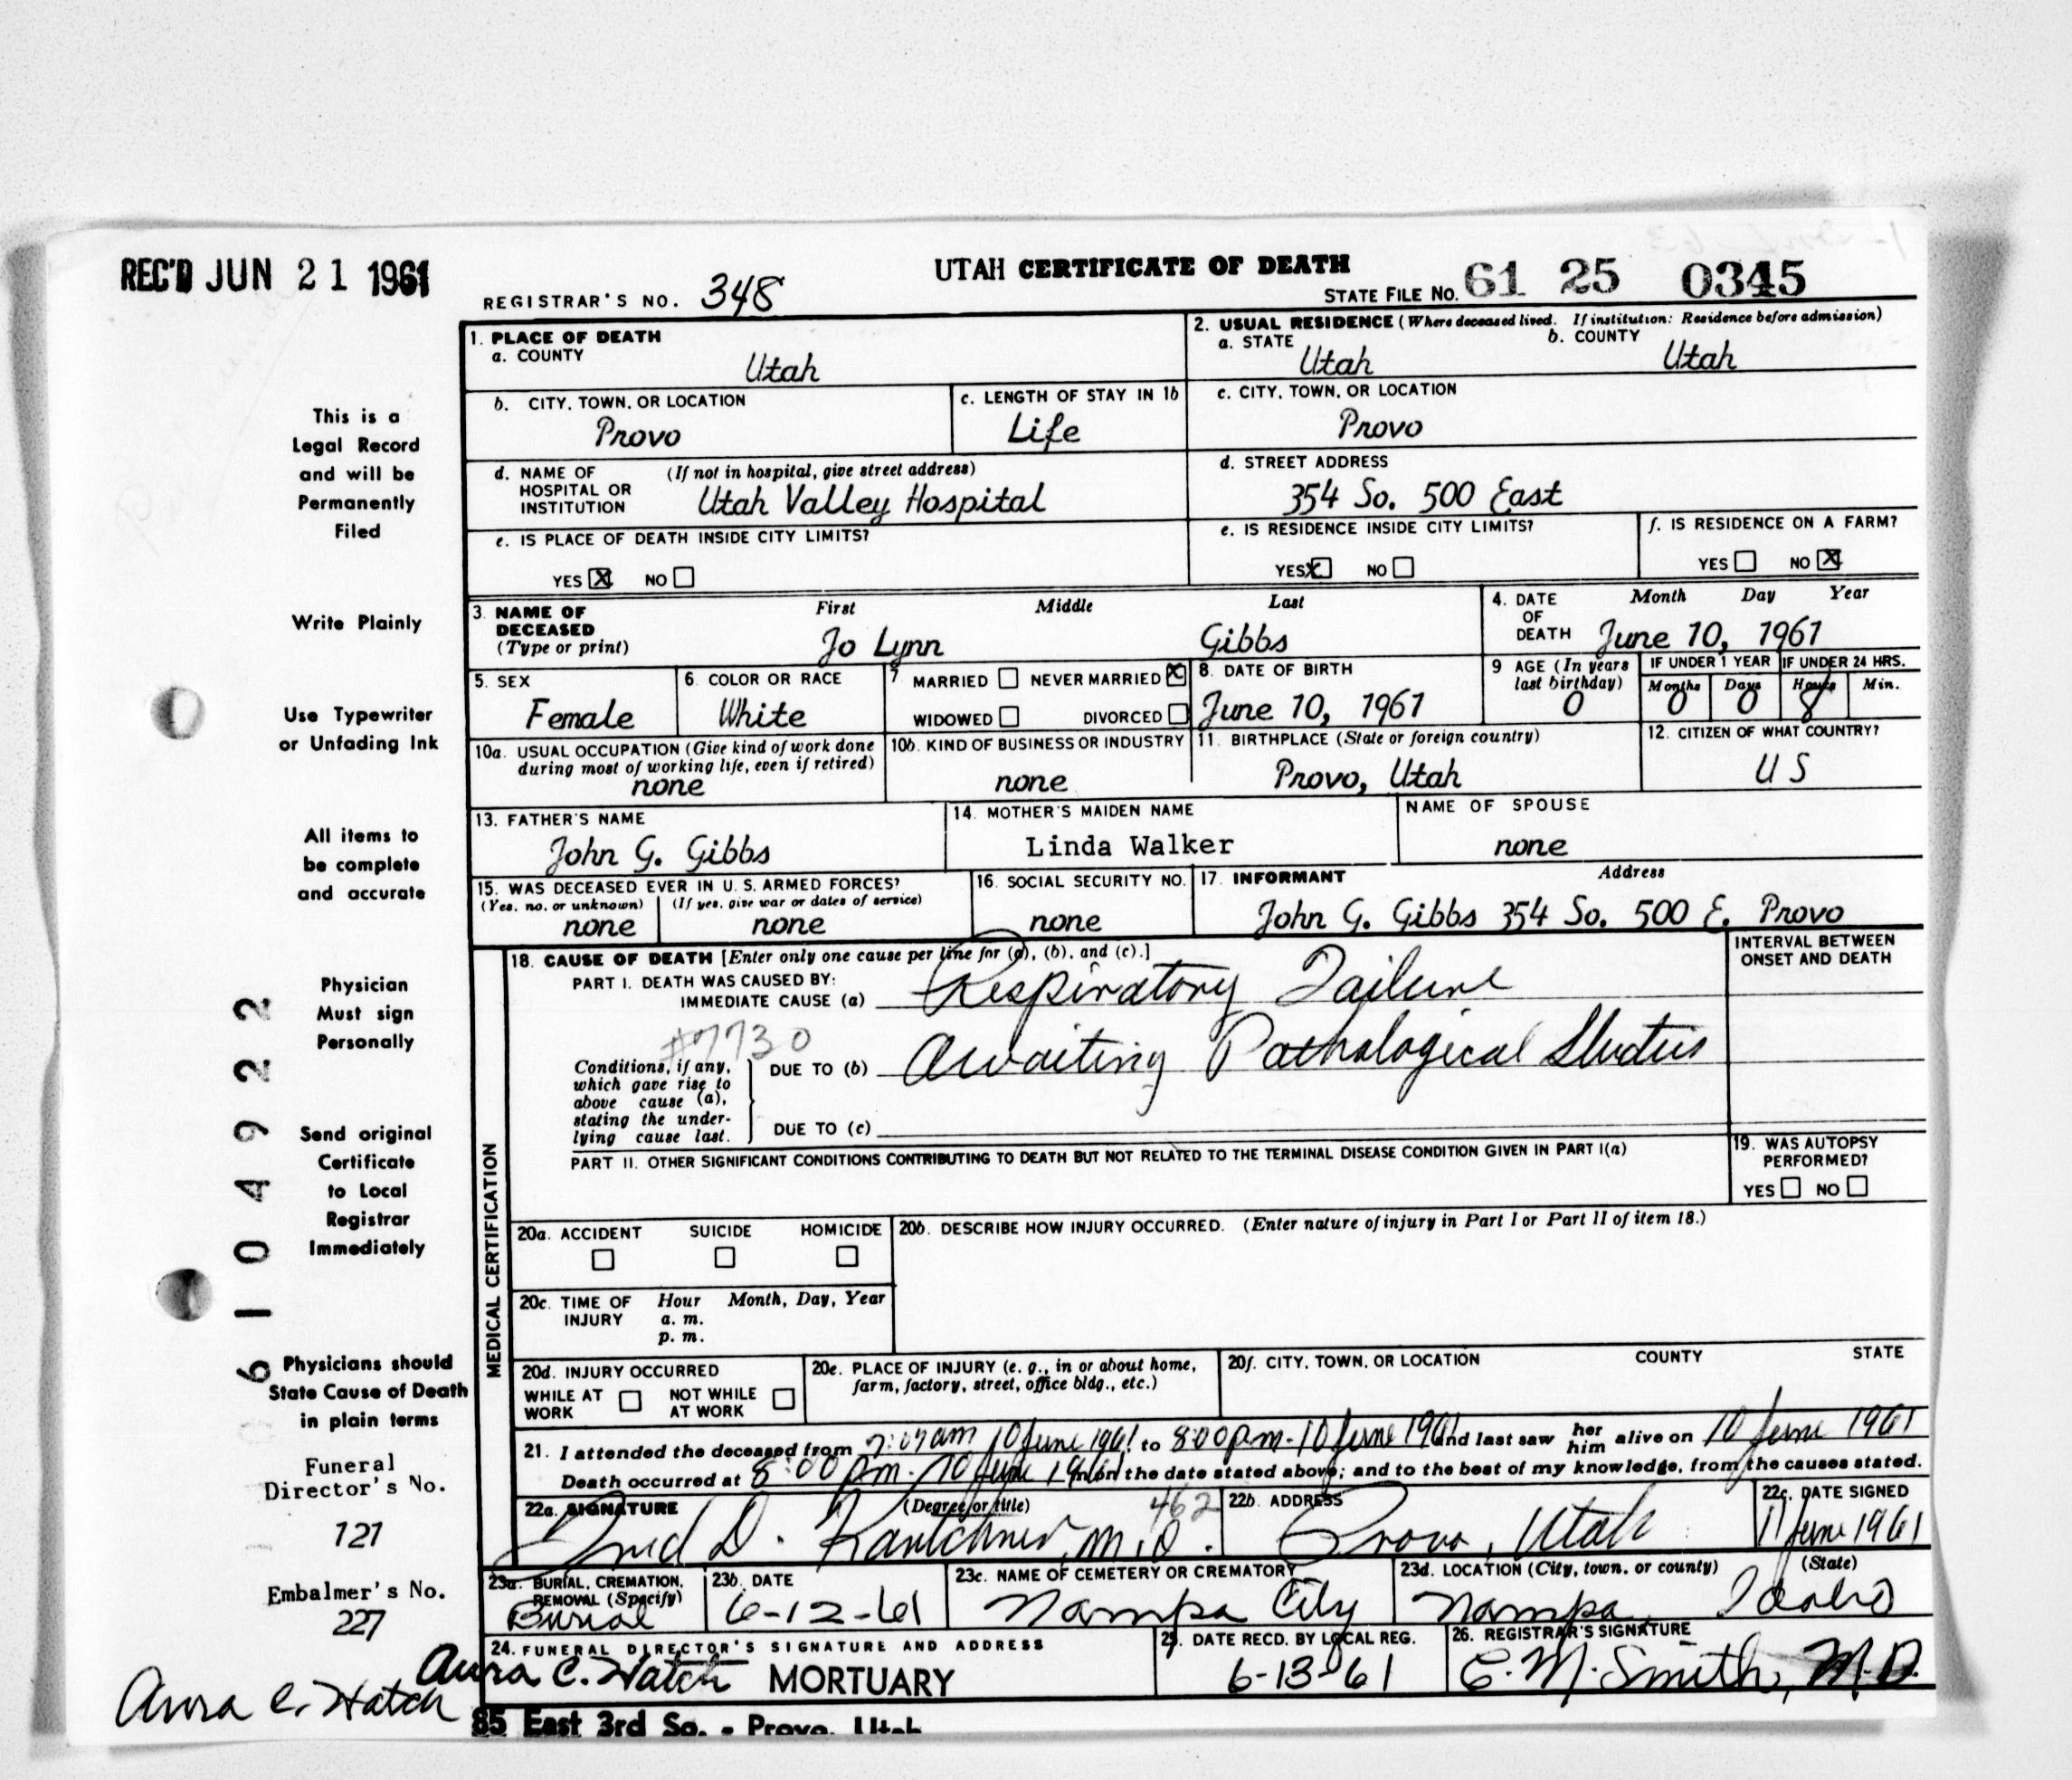 REC'D JUN 21 1961
UTAH CERTIFICATE OF DEATH
REGISTRAR'S NO. 348
STATE FILE No. 61 25 0345
1. PLACE OF DEATH
a. COUNTY
Utah
2. USUAL RESIDENCE (Where deceased lived. If institution: Residence before admission)
a. STATE Utah b. COUNTY Utah
b. CITY, TOWN, OR LOCATION
Provo
c. LENGTH OF STAY IN 1b
Life
c. CITY, TOWN, OR LOCATION
Provo
d. NAME OF HOSPITAL OR INSTITUTION (If not in hospital, give street address)
Utah Valley Hospital
d. STREET ADDRESS
354 So. 500 East
e. IS PLACE OF DEATH INSIDE CITY LIMITS?
YES X NO
e. IS RESIDENCE INSIDE CITY LIMITS?
YES X NO
f. IS RESIDENCE ON A FARM?
YES NO X
3. NAME OF DECEASED (Type or print)
First Middle Last
Jo Lynn Gibbs
4. DATE OF DEATH Month Day Year
June 10, 1961
5. SEX
Female
6. COLOR OR RACE
White
7 MARRIED NEVER MARRIED X
WIDOWED DIVORCED
8. DATE OF BIRTH
June 10, 1961
9 AGE (In years last birthday)
0
IF UNDER 1 YEAR IF UNDER 24 HRS.
Months Days Hours Min.
0 0 8
10a. USUAL OCCUPATION (Give kind of work done during most of working life, even if retired)
none
10b. KIND OF BUSINESS OR INDUSTRY
none
11. BIRTHPLACE (State or foreign country)
Provo, Utah
12. CITIZEN OF WHAT COUNTRY?
U S
13. FATHER'S NAME
John G. Gibbs
14. MOTHER'S MAIDEN NAME
Linda Walker
NAME OF SPOUSE
none
15. WAS DECEASED EVER IN U.S. ARMED FORCES?
(Yes, no, or unknown) (If yes, give war or dates of service)
none none
16. SOCIAL SECURITY NO.
none
17. INFORMANT Address
John G. Gibbs 354 So. 500 E. Provo
18. CAUSE OF DEATH [Enter only one cause per line for (a), (b), and (c).]
PART I. DEATH WAS CAUSED BY:
IMMEDIATE CAUSE (a) Respiratory Failure
#7730
Conditions, if any, which gave rise to above cause (a), stating the underlying cause last.
DUE TO (b) Awaiting Pathological Studies
DUE TO (c)
INTERVAL BETWEEN ONSET AND DEATH
PART II. OTHER SIGNIFICANT CONDITIONS CONTRIBUTING TO DEATH BUT NOT RELATED TO THE TERMINAL DISEASE CONDITION GIVEN IN PART I(a)
19. WAS AUTOPSY PERFORMED?
YES NO
MEDICAL CERTIFICATION
20a. ACCIDENT SUICIDE HOMICIDE
20b. DESCRIBE HOW INJURY OCCURRED. (Enter nature of injury in Part I or Part II of item 18.)
20c. TIME OF INJURY Hour Month, Day, Year
a. m.
p. m.
20d. INJURY OCCURRED
WHILE AT WORK NOT WHILE AT WORK
20e. PLACE OF INJURY (e. g., in or about home, farm, factory, street, office bldg., etc.)
20f. CITY, TOWN, OR LOCATION COUNTY STATE
21. I attended the deceased from am 10 June 1961 to 8:00 pm. 10 June 1961 and last saw her him alive on 10 June 1961
Death occurred at 8:00 pm. 10 June 1961 m on the date stated above; and to the best of my knowledge, from the causes stated.
22a. SIGNATURE (Degree or title) 462
D. M.D.
22b. ADDRESS
Provo, Utah
22c. DATE SIGNED
11 June 1961
23a. BURIAL, CREMATION, REMOVAL (Specify)
Burial
23b. DATE
6-12-61
23c. NAME OF CEMETERY OR CREMATORY
Nampa City
23d. LOCATION (City, town, or county) (State)
Nampa, Idaho
24. FUNERAL DIRECTOR'S SIGNATURE AND ADDRESS
Aura C. Hatch MORTUARY
85 East 3rd So. - Provo, Utah
25. DATE RECD. BY LOCAL REG.
6-13-61
26. REGISTRAR'S SIGNATURE
C. M. Smith, M.D.
This is a
Legal Record
and will be
Permanently
Filed
Write Plainly
Use Typewriter
or Unfading Ink
All items to
be complete
and accurate
Physician
Must sign
Personally
Send original
Certificate
to Local
Registrar
Immediately
Physicians should
State Cause of Death
in plain terms
61049222
Funeral
Director's No.
121
Embalmer's No.
227
Aura C. Hatch